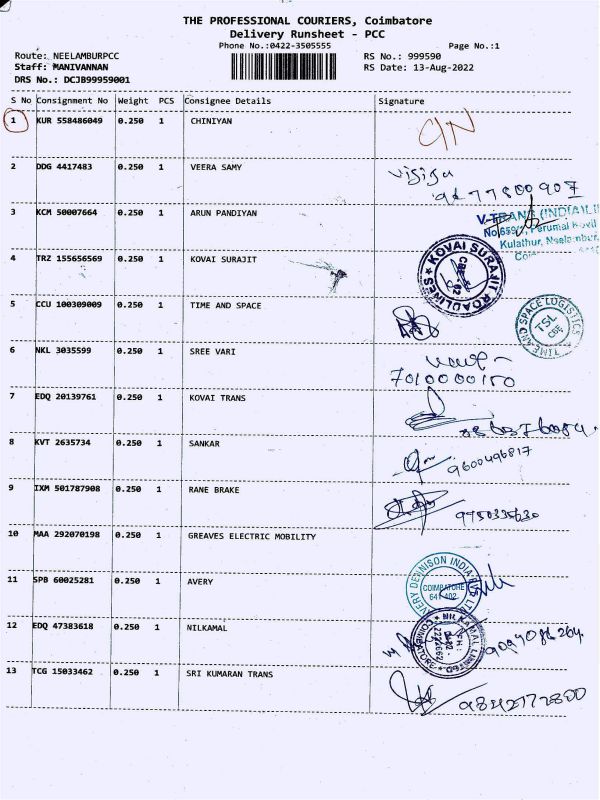 THE PROFESSIONAL COURIERS, Coimbatore
Delivery Runsheet - PCC
Phone No.:0422-3505555
Page No.:1
Route: NEELAMBURPCC
RS No.: 999590
Staff: MANIVANNAN
RS Date: 13-Aug-2022
DRS No.: DCJB99959001
S No Consignment No Weight PCS Consignee Details Signature
1 KUR 558486049 0.250 1 CHINIYAN
2 DDG 4417483 0.250 1 VEERA SAMY
3 KCM 50007664 0.250 1 ARUN PANDIYAN
V-TRANS (INDIA) LI
Perumal Kovil
Kulathur, Neelambur,
4 TRZ 155656569 0.250 1 KOVAI SURAJIT
KOVAI SURAJIT ROADLINES
5 CCU 100309009 0.250 1 TIME AND SPACE
TIME AND SPACE LOGISTICS
TSL
CBE
6 NKL 3035599 0.250 1 SREE VARI
7010000150
7 EDQ 20139761 0.250 1 KOVAI TRANS
8 KVT 2635734 0.250 1 SANKAR
9600496817
9 IXM 501787908 0.250 1 RANE BRAKE
9750335630
10 MAA 292070198 0.250 1 GREAVES ELECTRIC MOBILITY
11 SPB 60025281 0.250 1 AVERY
AVERY DENNISON INDIA PVT LTD
COIMBATORE
641 402
12 EDQ 47383618 0.250 1 NILKAMAL
NILKAMAL LIMITED
COIMBATORE
13 TCG 15033462 0.250 1 SRI KUMARAN TRANS
9842772800